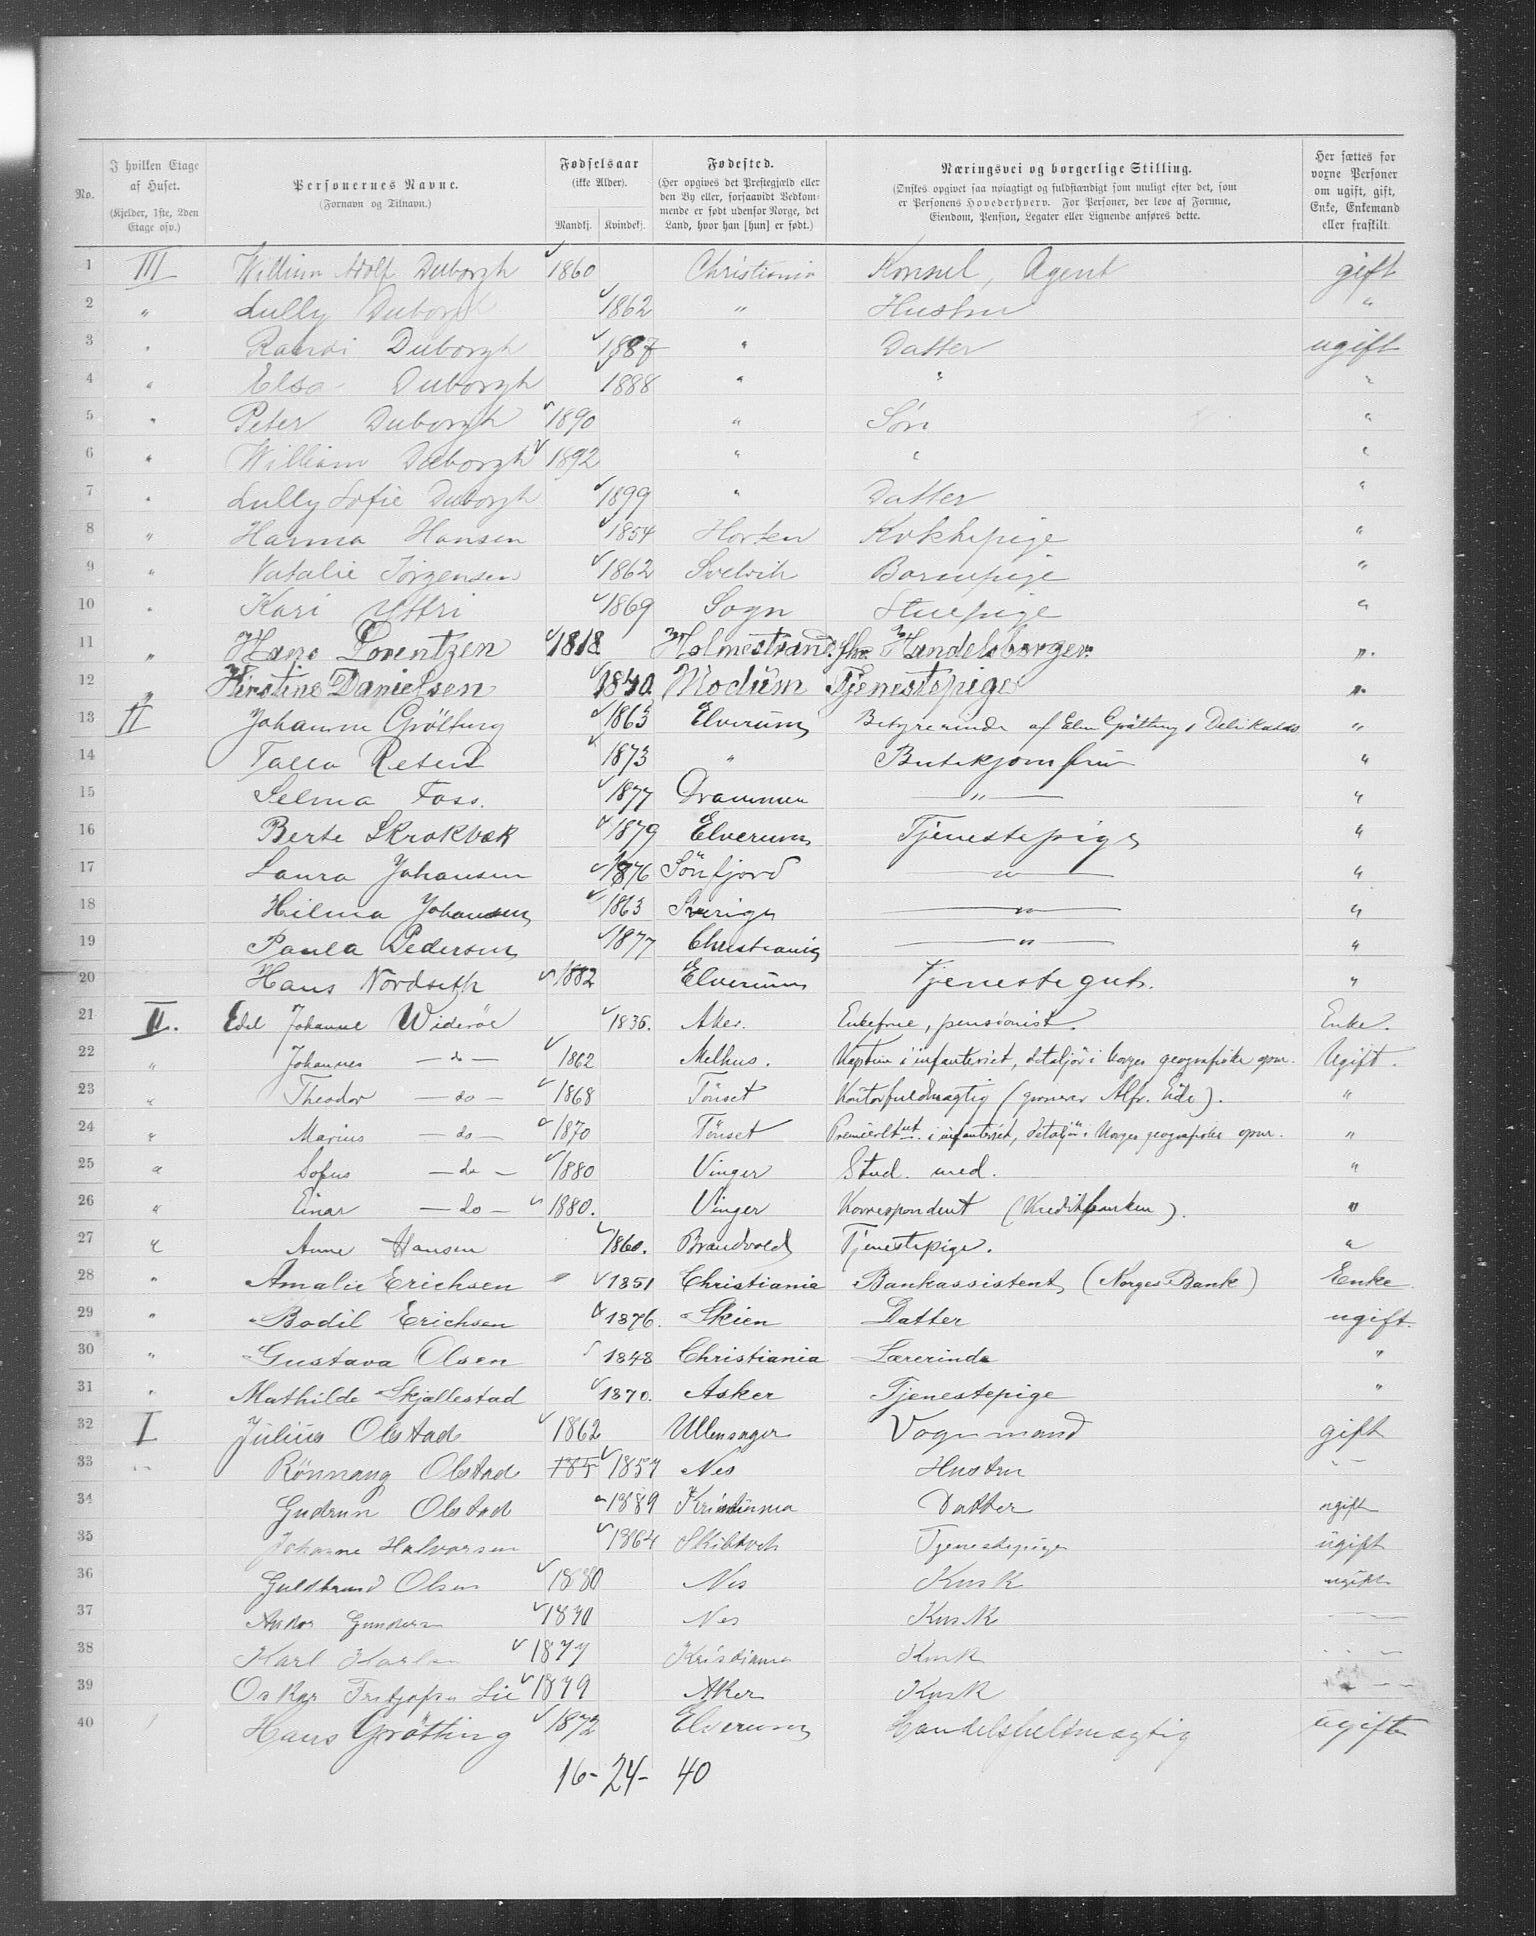 No.
I hvilken Etage af Huset.
(Kjelder, 1ste, 2den Etage osv.)
Personernes Navne.
(Fornavn og Tilnavn.)
Fødselsaar
(ikke Alder).
Mandkj. Kvindekj.
Fødested.
(Her opgives det Prestegjæld eller den By eller, forsaavidt Vedkommende er født udenfor Norge, det Land, hvor han [hun] er født.)
Næringsvei og borgerlige Stilling.
(Ønskes opgivet saa nøiagtigt og fuldstændigt som muligt efter det, som er Personens Hovederhverv. For Personer, der leve af Formue, Eiendom, Pension, Legater eller Lignende anføres dette.
Her sættes for voxne Personer om ugift, gift, Enke, Enkemand eller fraskilt.
1 III William Adolf Duborgh 1860 Christiania Konsul, Agent gift
2 " Lully Duborgh 1862 " Hustru "
3 " Randi Duborgh 1887 " Datter ugift
4 " Elsa Duborgh 1888 " " "
5 " Peter Duborgh 1890 " Søn "
6 " William Duborgh 1892 " " "
7 " Lully Sofie Duborgh 1899 " Datter "
8 " Hanna Hansen 1854 Horten Kokkepige "
9 " Natalie Jörgensen 1862 Svelvik Barnepige "
10 " Kari Yttri 1869 Sogn Stuepige "
11 " Hans Lorentzen 1818 Holmestrand fhv. Handelsborger "
12 " Kirstine Danielsen 1840 Modum Tjenestepige "
13 II Johanne Grötting 1863 Elverum Bestyrerinde af Elen Grøtting's Delikatess "
14 Reten 1873 " Butikjomfru "
15 Selma Foss. 1877 Drammen —"— "
16 Berte Skrokbæk 1879 Elverum Tjenestepige "
17 Laura Johansen 1876 Sönfjord —"— "
18 Hilma Johansen 1863 Sverige —"— "
19 Paula Pedersen 1877 Christiania —"— "
20 Hans Nordseth 1882 Elverum Tjenestegut. "
21 II. Edel Johanne Wideröe 1836. Aker. Enkefrue, pensionist. Enke.
22 " Johannes — do — 1862 Melhus. Kaptein i infanteriet, detaljör i Norges geografiske opm. Ugift.
23 " Theodor — do — 1868 Tönset Kontorfuldmægtig (Alfr. Eide). "
24 " Marius — do — 1870 Tönset Premierltnt. i infanteriet, detaljör i Norges geografiske opm. "
25 " Sofus — do — 1880 Vinger Stud. med. "
26 " Einar — do — 1880. Vinger Korrespondent (Kreditbanken). "
27 " Anne Hansen 1860. Brandvold Tjenestepige. "
28 " Amalie Erichsen 1851 Christiania Bankassistent (Norges Bank) Enke
29 " Bodil Erichsen 1876. Skien Datter ugift.
30 " Gustava Olsen 1848 Christiania Lærerinde "
31 " Mathilde Skjallestad 1870. Asker Tjenestepige "
32 I Julius Olstad 1862 Ullensager Vognmand gift
33 " Rönnaug Olstad 185 1857 Nes Hustru — "
34 Gudrun Olstad 1889 Kristiania Datter ugift
35 Johanne Halvorsen 1864 Skibtvet Tjenestepige ugift
36 Guldbrand Olsen 1880 Nes Kusk ugift
37 Andor Gundersen 1870 Nes Kusk — —
38 Karl Karlsen 1877 Kristiania Kusk — —
39 Oskar Lie 1879 Aker Kusk — —
40 Hans Grötting 1872 Elverum Handelsfuldmægtig ugift
16 - 24 - 40